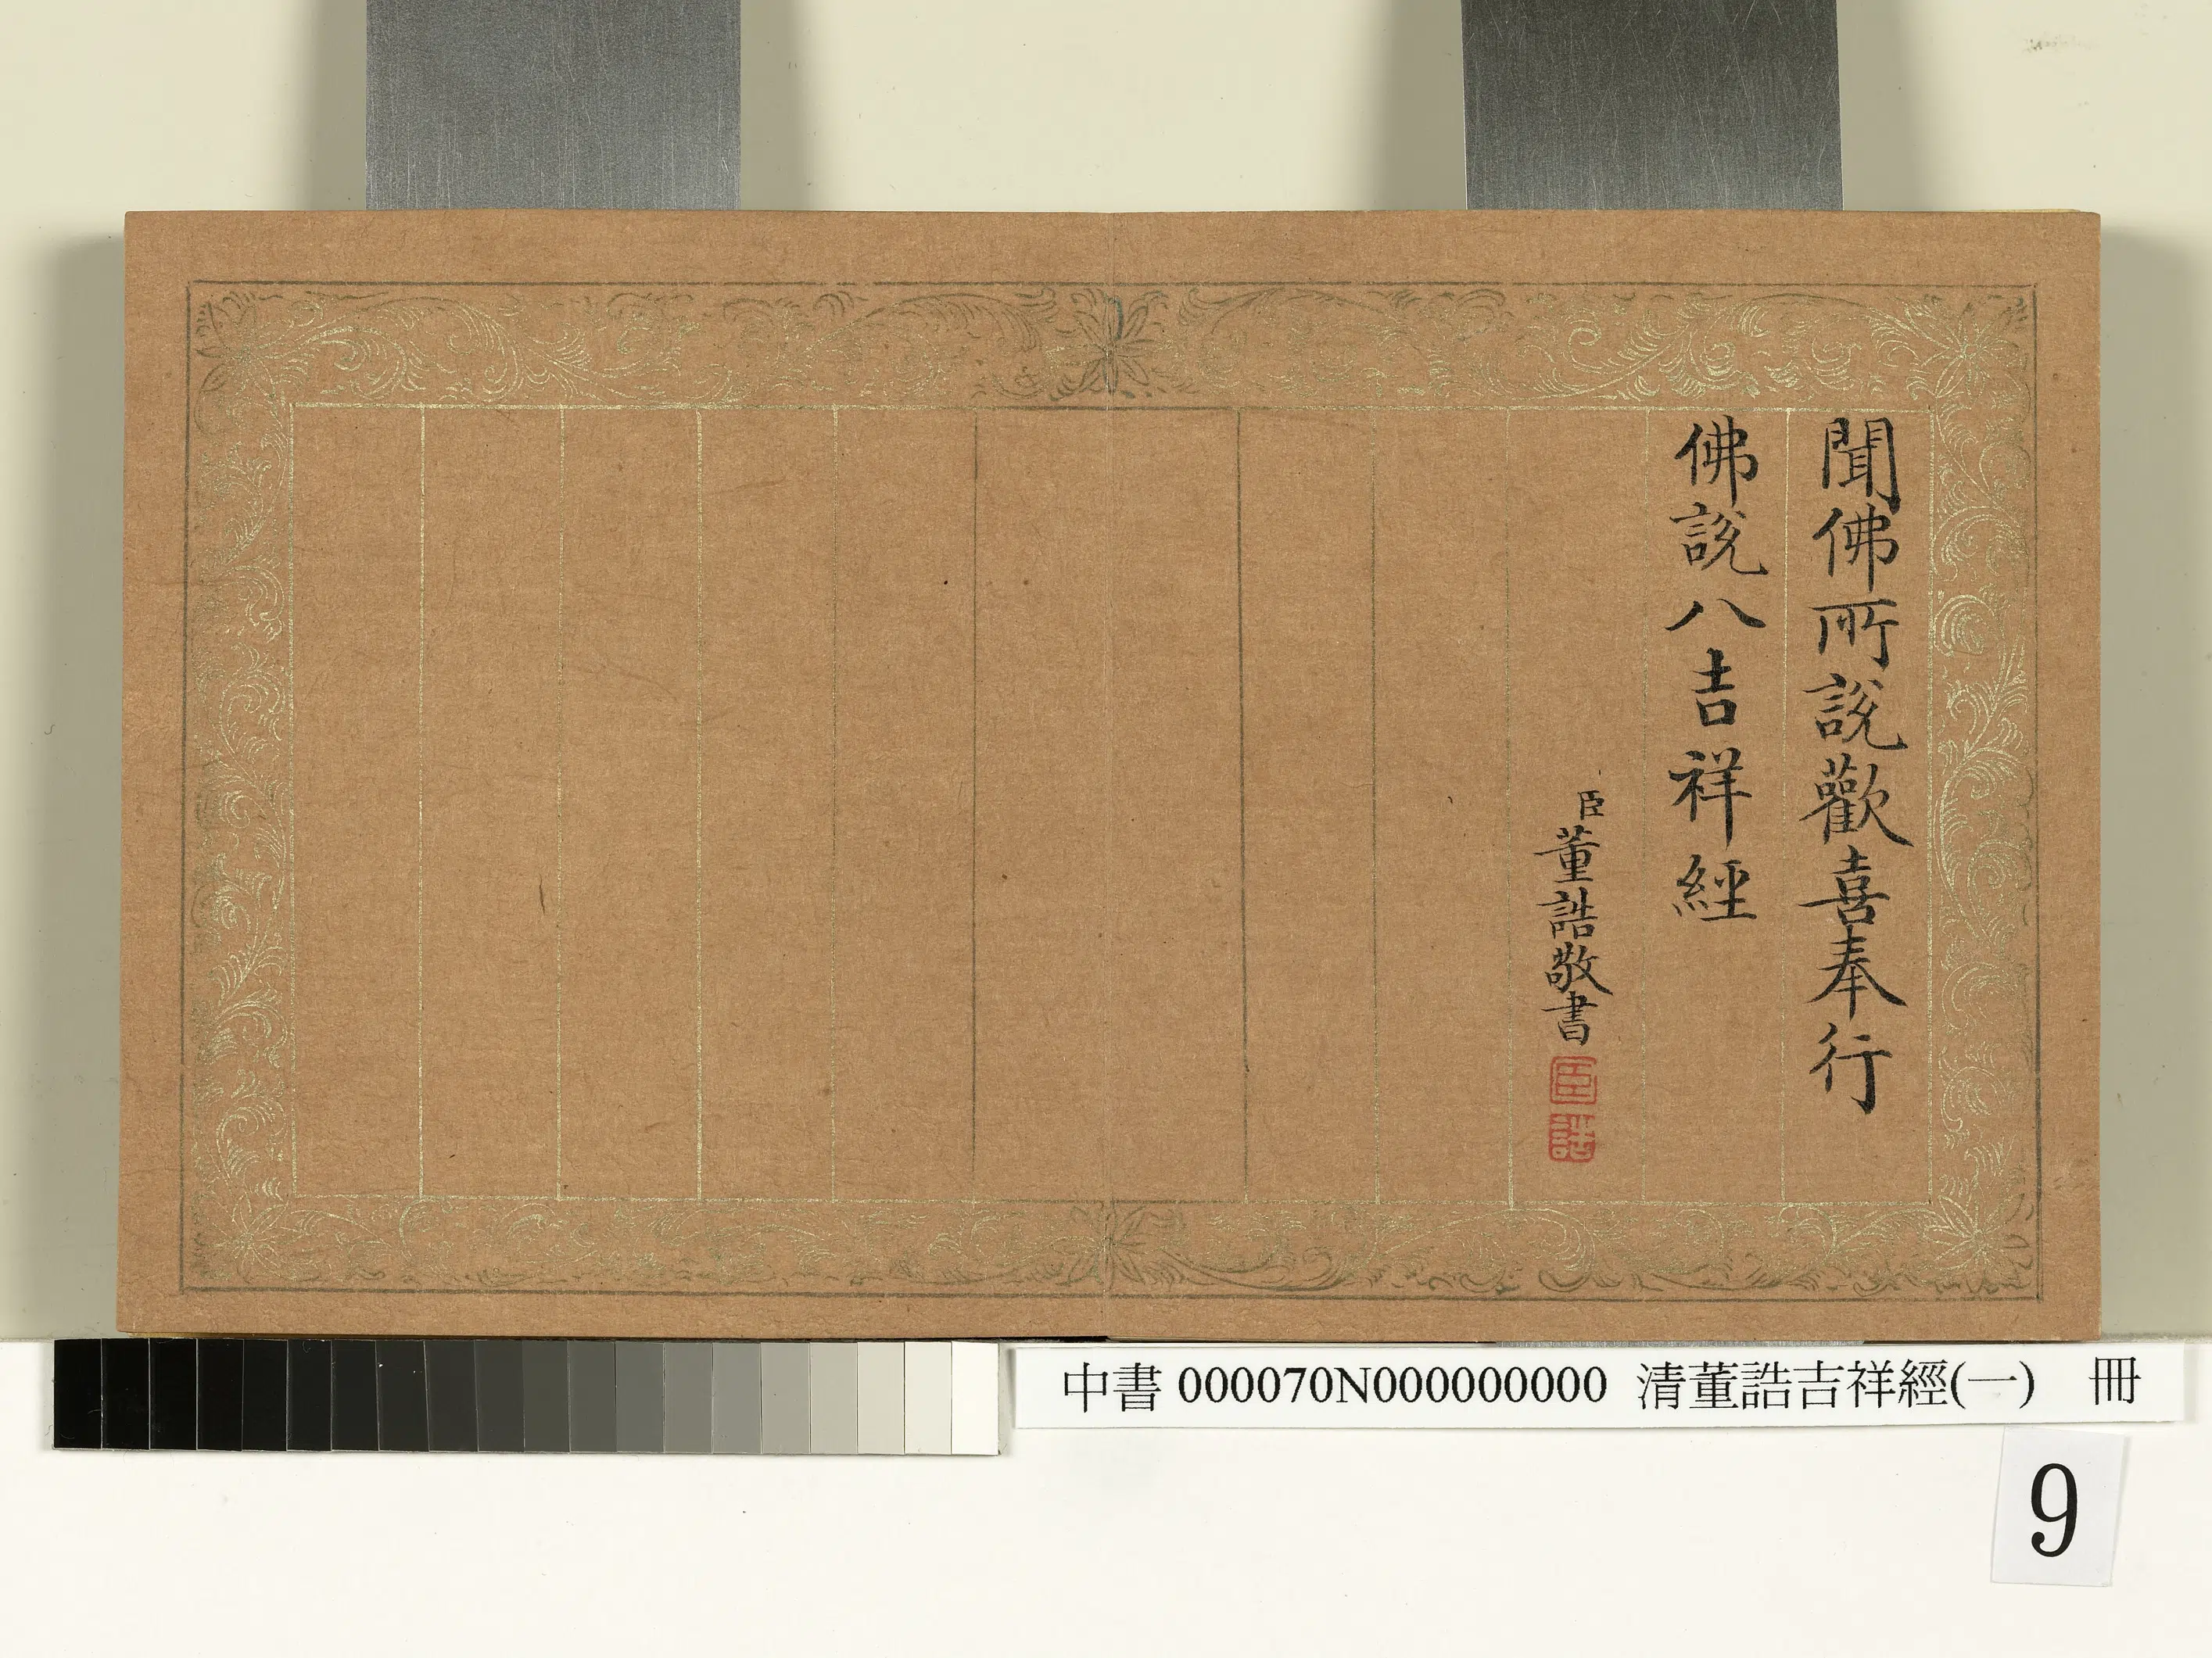 聞佛所說歡喜奉行
佛說八吉祥經
臣董誥敬書
臣
誥
中書 000070N000000000 清董誥吉祥經(一) 冊
9